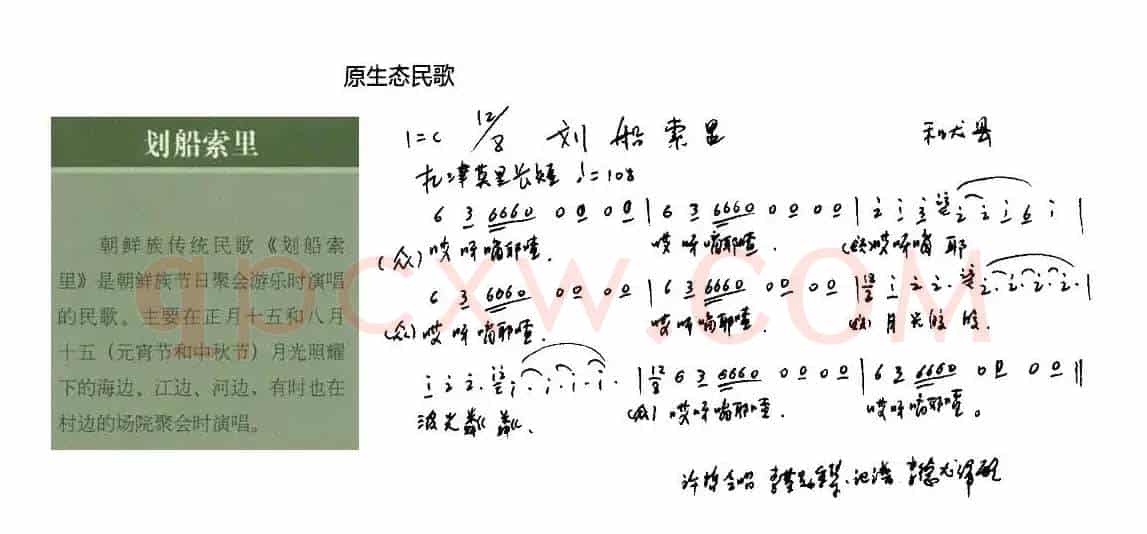 原生态民歌
划船索里
朝鲜族传统民歌《划船索
里》是朝鲜族节日聚会游乐时演唱
的民歌。主要在正月十五和八月
十五（元宵节和中秋节）月光照耀
下的海边、江边、河边、有时也在
村边的场院聚会时演唱。
1=C 12/8 划船索里 和龙县
扎津莫里长短 ♩.=108
6 3 6660 0 0 0 0 | 6 3 6660 0 0 0 0 |
(众) 哎呀嗬耶喳. 哎呀嗬耶喳. 哎呀嗬耶
6 3 6060 0 0 0 0 | 6 3 6660 0 0 0 0 |
(众) 哎呀嗬耶喳. 哎呀嗬耶喳. 月光皎皎.
12/8 6 3 6660 0 0 0 0 | 6 3 6660 0 0 0 0 ‖
波光粼粼. (众) 哎呀嗬耶喳. 哎呀嗬耶喳。
记谱
qpcxw.COM